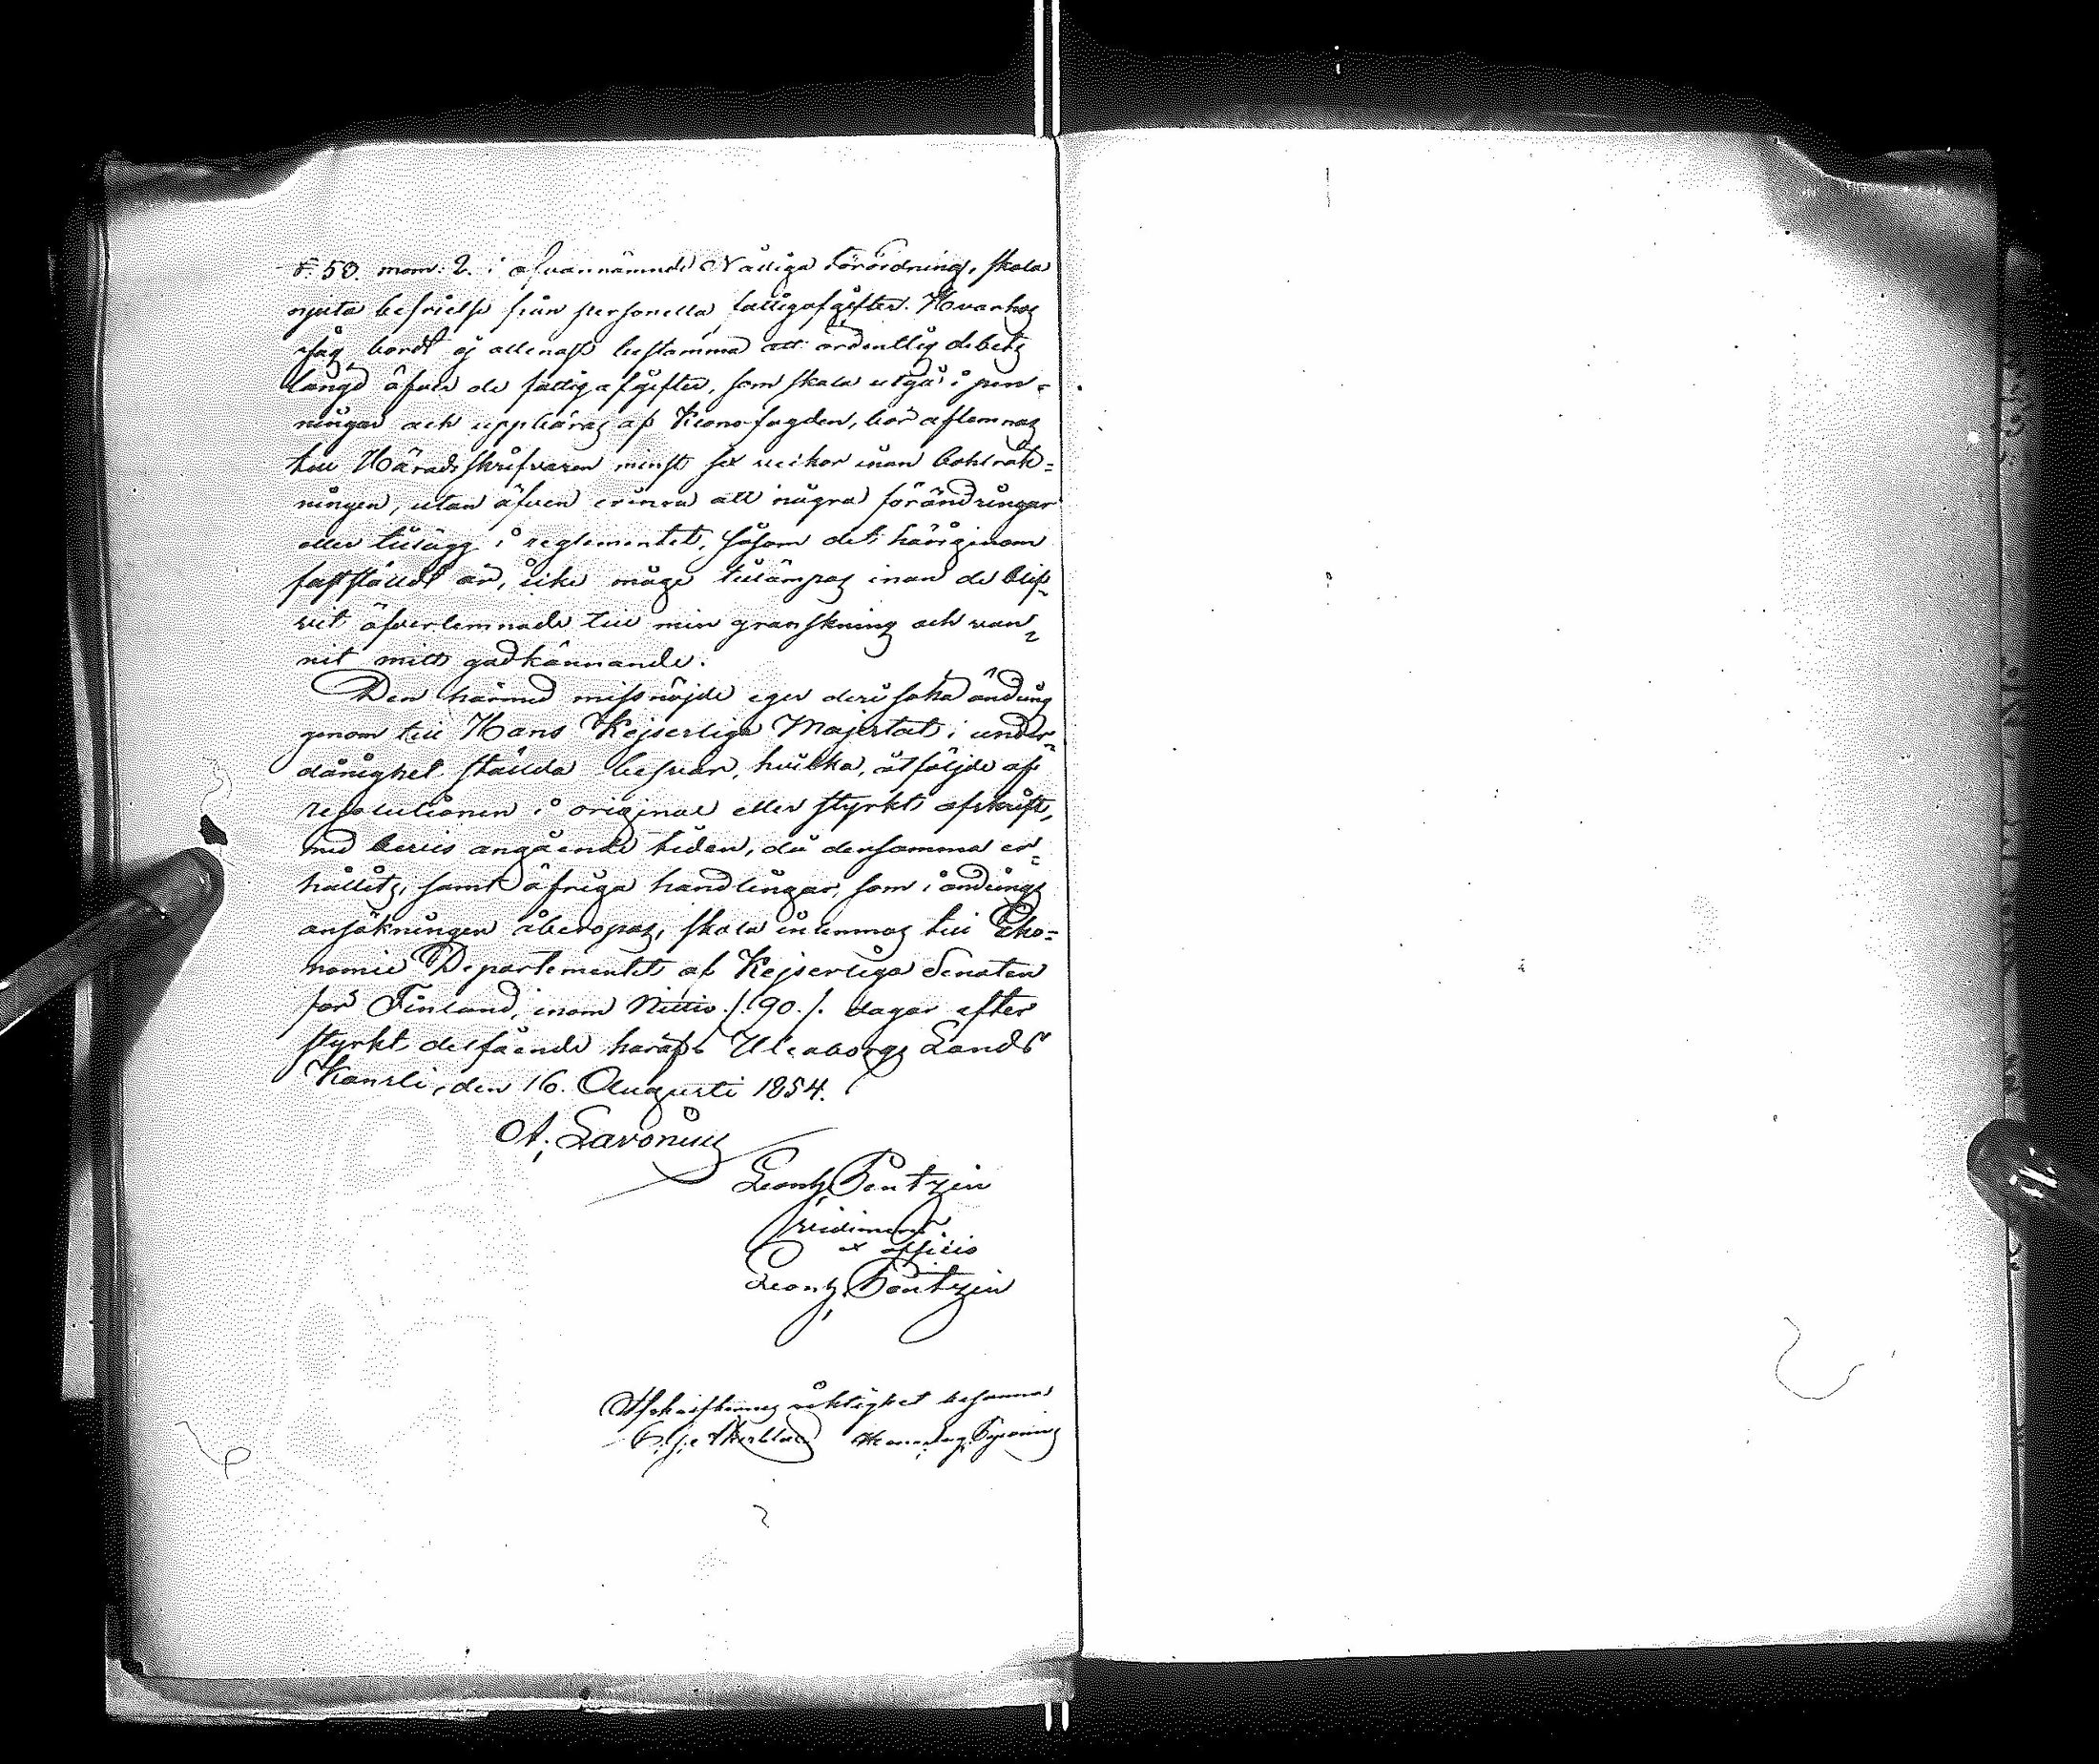 §. 50. mom. 2. i ofvannämnde Nådiga Förordning, skola
njuta befrielse från personella fattigafgifter. Hvarhos
jag bordt ej allenast bestämma att ordentlig debets
längd öfver de fattigafgifter, som skola utgå i pen-
ningar och uppbäras af Kronofogden, bör aflemnas
till Häradsskrifvaren minst sex veckor innan bohlräk=
ningen, utan äfven erinra att några förändringar
eller tillägg i reglementet, såsom det härigenom
fastställdt är, icke måge tillämpas innan de blif-
vit öfverlemnade till min granskning och vun-
nit mitt godkännande.
Den härmed missnöjde eger deri söka ändring
genom till Hans Kejserliga Majestät i under-
dånighet ställda besvär, hvilka, åtföljde af
resolutionen i original eller styrkt afskrift,
med bevis angående tiden, då densamma er=
hållits, samt öfriga handlingar, som i ändrings
ansökningen åberopas, skola inlemnas till Eko=
nomie Departementet af Kejserliga Senaten
för Finland, inom Nittio /.90./. dagar efter
styrkt delfående häraf. Uleaborgs Lands
Kansli, den 16. Augusti 1854.
A. Lavonius
Leonh. Pentzin
Vidimerar
ex officio
Leonh. Pentzin
Afskriftens riktighet besanna